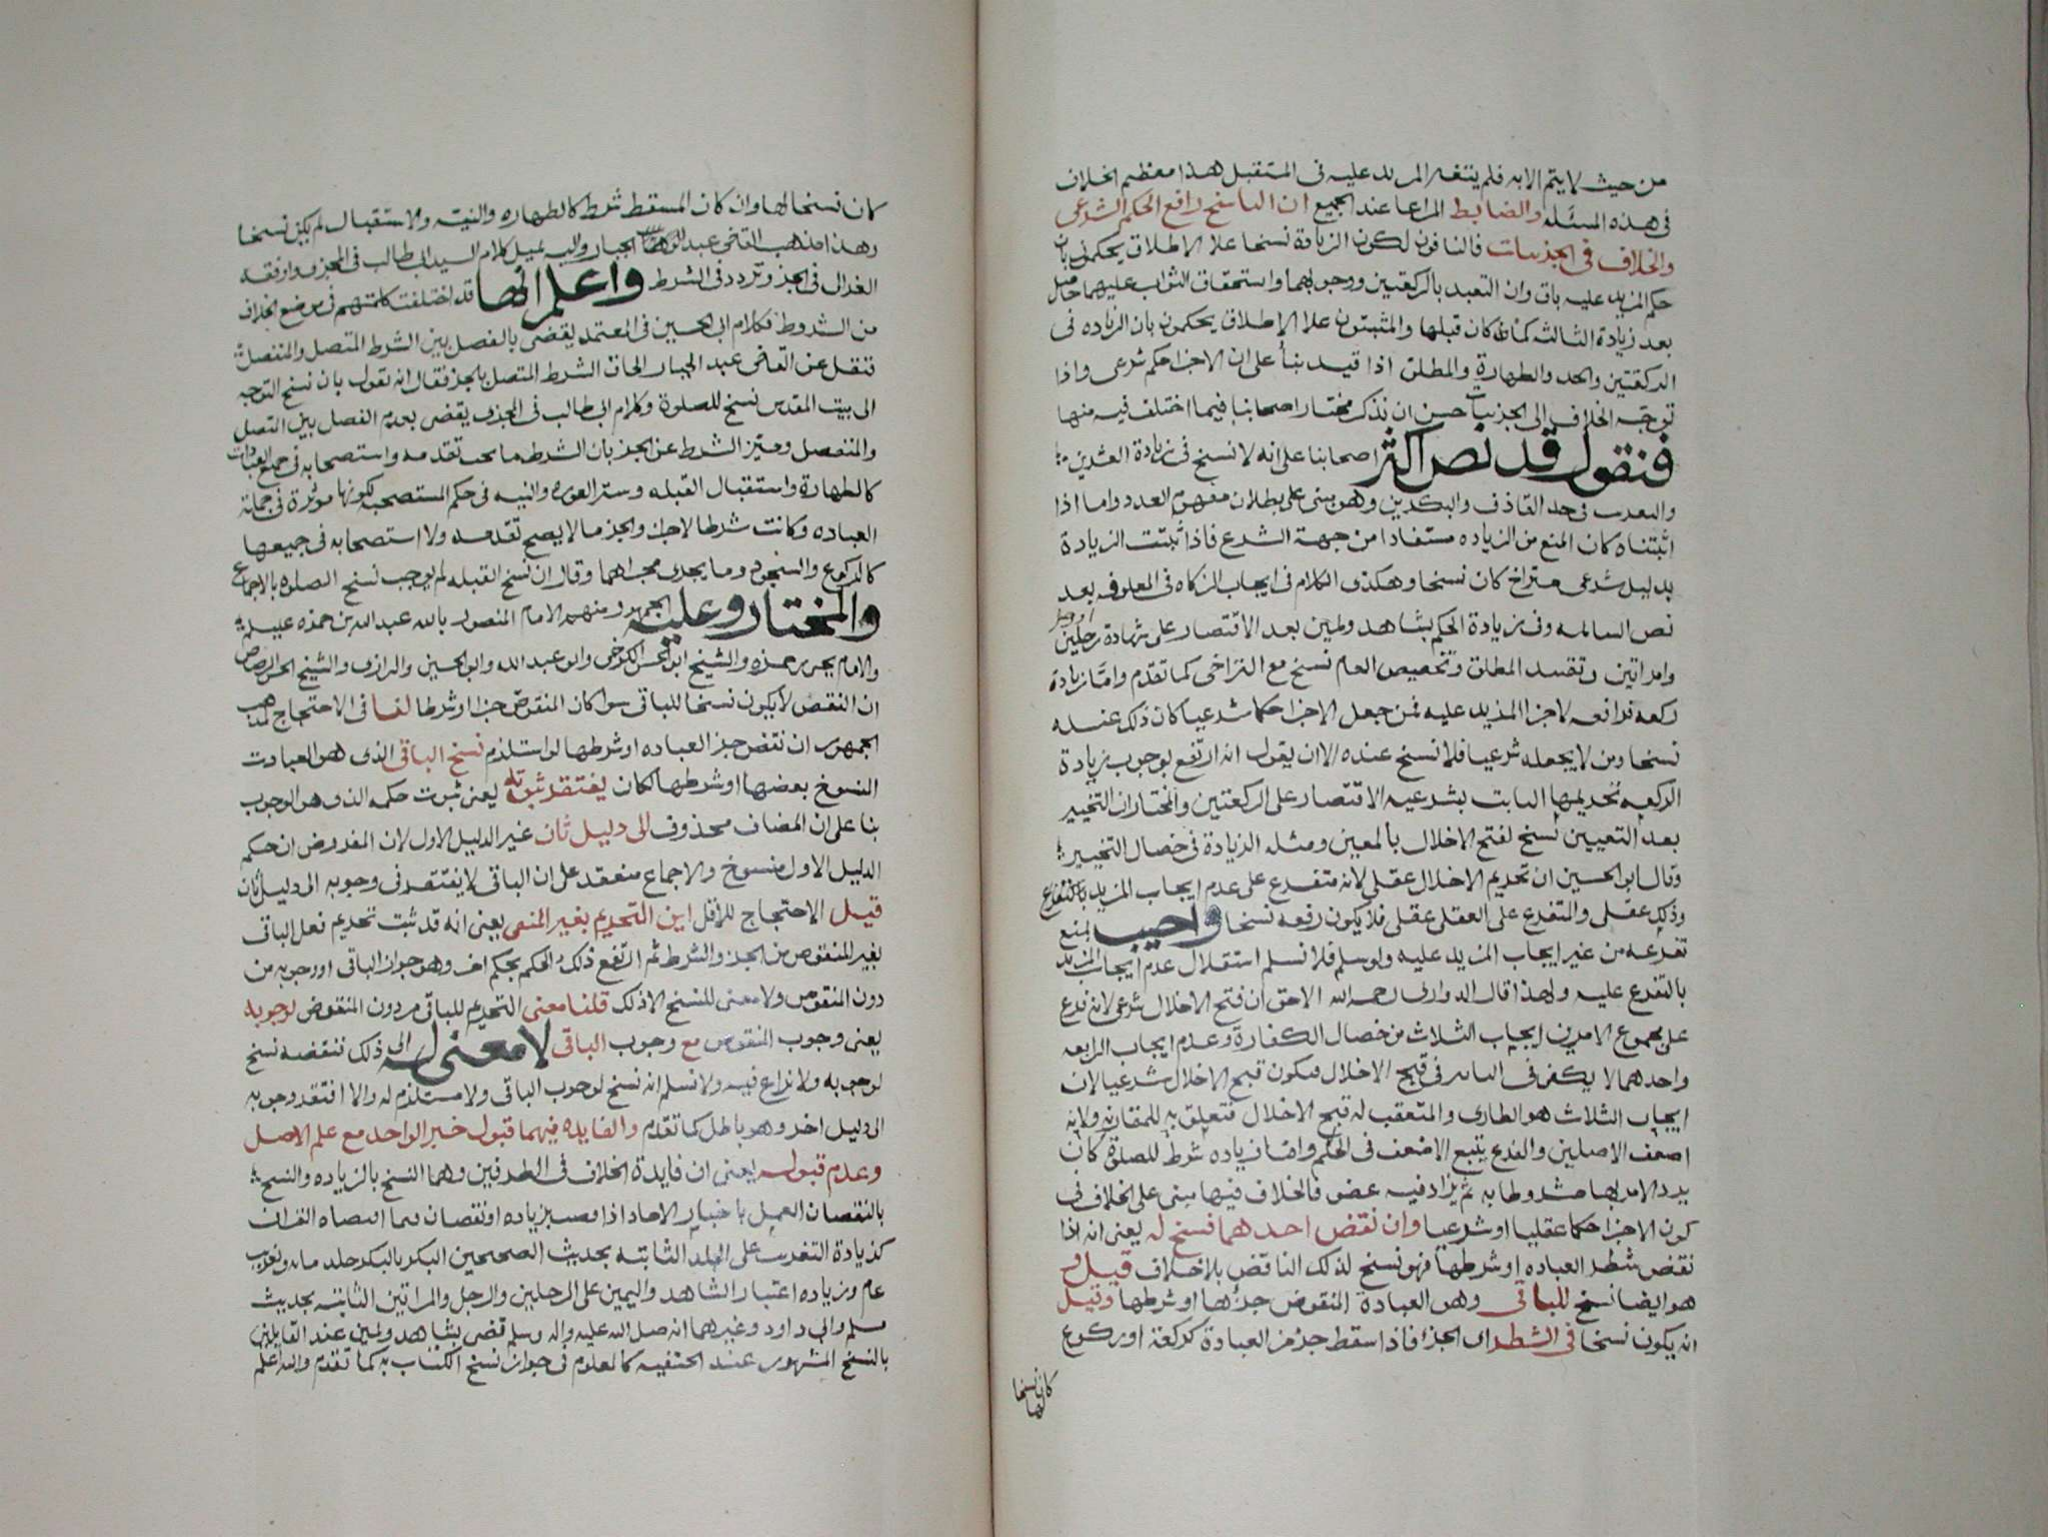 من حيث لا يتم الا به فلم يتغير المزيد عليه فى المستقبل هذا معظم الخلاف
فى هذه المسئله والضابط المراعا عند الجميع ان الناسخ رافع الحكم الشرعى
والخلاف فى الجزئيات فالنافون لكون الزيادة نسخا علا الاطلاق يحكمون بان
حكم المزيد عليه باق وان التعبد بالركعتين ووجوبهما واستحقاق الثواب عليهما حاصل
بعد زيادة الثالثه كما كان قبلها والمثبتون علا الاطلاق يحكمون بان الزياده فى
الركعتين والحد والطهارة والمطلق اذا قيد بناً على ان الاجزا حكم شرعى واذا
توجّه الخلاف الى الجزئيات حسن ان نذكر مختار اصحابنا فيما اختلف فيه منها
فنقول قد نص اكثر اصحابنا على انه لا نسخ فى زيادة العشرين
والتغريب فى حد القاذف والبكرين وهو مبنى على بطلان مفهوم العدد واما اذا
اثبتناه كان المنع من الزياده مستفادا من جهة الشرع فاذا ثبتت الزيادة
بدليل شرعى متراخ كان نسخا وهكذى الكلام فى ايجاب الزكاه فى المعلوفه بعد
نص السائمه وفى زيادة الحكم بشاهد ويمين بعد الاقتصار على شهادة رجلين او رجل
وامراتين وتقييد المطلق وتخصيص العام نسخ مع التراخى كما تقدم وامّا زيادة
ركعه فرافعه لاجزا المزيد عليه فمن جعل الاجزا حكما شرعيا كان ذلك عنده
نسخا ومن لا يجعله شرعيا فلا نسخ عنده الا ان يقول انه ارتفع بوجوب زيادة
الركعه تحريمها الثابت بشرعيه الاقتصار على الركعتين والمختار ان التخيير
بعد التعيين نسخ لقبح الاخلال بالمعين ومثله الزيادة فى خصال التخيير
وقال ابو الحسين ان تحريم الاخلال عقلى لانه متفرع على عدم ايجاب المزيد بالتفرع
وذلك عقلى والمتفرع على العقلى عقلى فلا يكون رفعه نسخا واجيب بمنع
تفرعه من غير ايجاب المزيد عليه ولو سلم فلا نسلم استقلال عدم ايجاب المزيد
بالتفرع عليه ولهذا قال الدوارى رحمه الله الاحق ان قبح الاخلال شرعى لانه فرع
على مجموع الامرين ايجاب الثلاث من خصال الكفارة وعدم ايجاب الرابعه
واحدهما لا يكفى فى التاثير فى قبح الاخلال فيكون قبح الاخلال شرعيا لان
ايجاب الثلاث هو الطارى والمتعقب له قبح الاخلال فتعلق به للمقارنه ولانه
اضعف الاصلين والفرع يتبع الاضعف فى الحكم واما زياده شرط للصلوة كان
يرد الامر بها مشروطا به ثم يزاد فيه عضو فالخلاف فيها مبنى على الخلاف فى
كون الاجزا حكما عقليا او شرعيا وان نقض احدهما نسخ له يعنى انه اذا
نقض شطر العباده او شرطها فهو نسخ لذلك الناقض بلا خلاف قيل و
هو ايضا نسخ للباقى وهو العبادة المنقوض جزءها او شرطها وقيل
انه يكون نسخا فى الشطر اى الجزا فاذا اسقط جزء من العبادة كركعة او ركوع
كان نسخا لها
كان نسخا لها وان كان المسقط شرط كالطهاره والنيه والاستقبال لم يكن نسخا
وهذا مذهب القاضى عبد الجبار واليه يميل كلام السيد ابى طالب فى المجزى ووافقه
الغزالى فى الجزء وتردد فى الشرط واعلم انها قد اختلفت كلمتهم فى موضع الخلاف
من الشروط فكلام ابى الحسين فى المعتمد يقضى بالفصل بين الشرط المتصل والمنفصل
فنقل عن القاضى عبد الجبار الحاق الشرط المتصل بالجزء فقال انه يقول بان نسخ التوجه
الى بيت المقدس نسخ للصلوة وكلام ابى طالب فى المجزى يقضى بعدم الفصل بين المتصل
والمنفصل وميّز الشرط عن الجزء بان الشرط ما يجب تقدمه واستصحابه فى جميع العبادات
كالطهارة واستقبال القبله وستر العوره والنيه فى حكم المستصحبه لكونها موثرة فى جملة
العباده وكانت شرطا لاجزا والجزء ما لا يصح تقدمه ولا استصحابه فى جميعها
كالركوع والسجود وما يجرى مجراهما وقال ان نسخ القبله لم يوجب نسخ الصلوه بالاجماع
والمختار وعليه الجمهور ومنهم الامام المنصور بالله عبد الله بن حمزه عليلم
والامام يحيى بن حمزه والشيخ ابو الحسن الكرخى وابو عبد الله وابو الحسين والرازى والشيخ الحسن الرصاص
ان النقص لا يكون نسخا للباقى سوا كان المنقوص جزا او شرطا لنا فى الاحتجاج لمذهب
الجمهور ان نقض جزء العباده او شرطها لو استلزم نسخ الباقى الذى هو العبادت
المنسوخ بعضها او شرطها لكان يفتقر ثبوته يعنى ثبوت حكمه الذى هو الوجوب
بنا على ان المضاف محذوف الى دليل ثان غير الدليل الاول لان المفروض ان حكم
الدليل الاول منسوخ والاجماع منعقد على ان الباقى لا يفتقر فى وجوبه الى دليل ثان
قيل الاحتجاج للاقل اين التحريم بغير المنقى يعنى انه قد ثبت تحريم فعل الباقى
بغير المنقوص من الجزء والشرط ثم ارتفع ذلك الحكم بحكم اخر وهو جواز الباقى او وجوبه من
دون المنقوص ولا معنى للنسخ الا ذلك قلنا معنى التحريم للباقى من دون المنقوص لوجوبه
يعنى وجوب المنقوص مع وجوب الباقى لا معنى له الى ذلك فنقضه نسخ
لوجوبه ولا نزاع فيه ولا نسلم انه نسخ لوجوب الباقى ولا مستلزم له والا افتقر وجوبه
الى دليل اخر وهو باطل كما تقدم والفايده فيهما قبول خبر الواحد مع علم الاصل
وعدم قبوله يعنى ان فايدة الخلاف فى الطرفين وهما النسخ بالزياده والنسخ
بالنقصان العمل باخبار الاحاد اذا وردت بزياده او نقصان فيما اقتضاه القران
كزيادة التغريب على الجلد الثابته بحديث الصحيحين البكر بالبكر جلد مايه وتغريب
عام وزياده اعتبار الشاهد واليمين على الرجلين والرجل والمراتين الثابته بحديث
مسلم وابى داود وغيرهما انه صلى الله عليه واله وسلم قضى بشاهد ويمين عند القايلين
بالنسخ المشهور عند الحنفيه كالمعلوم فى جواز نسخ الكتاب به كما تقدم والله اعلم